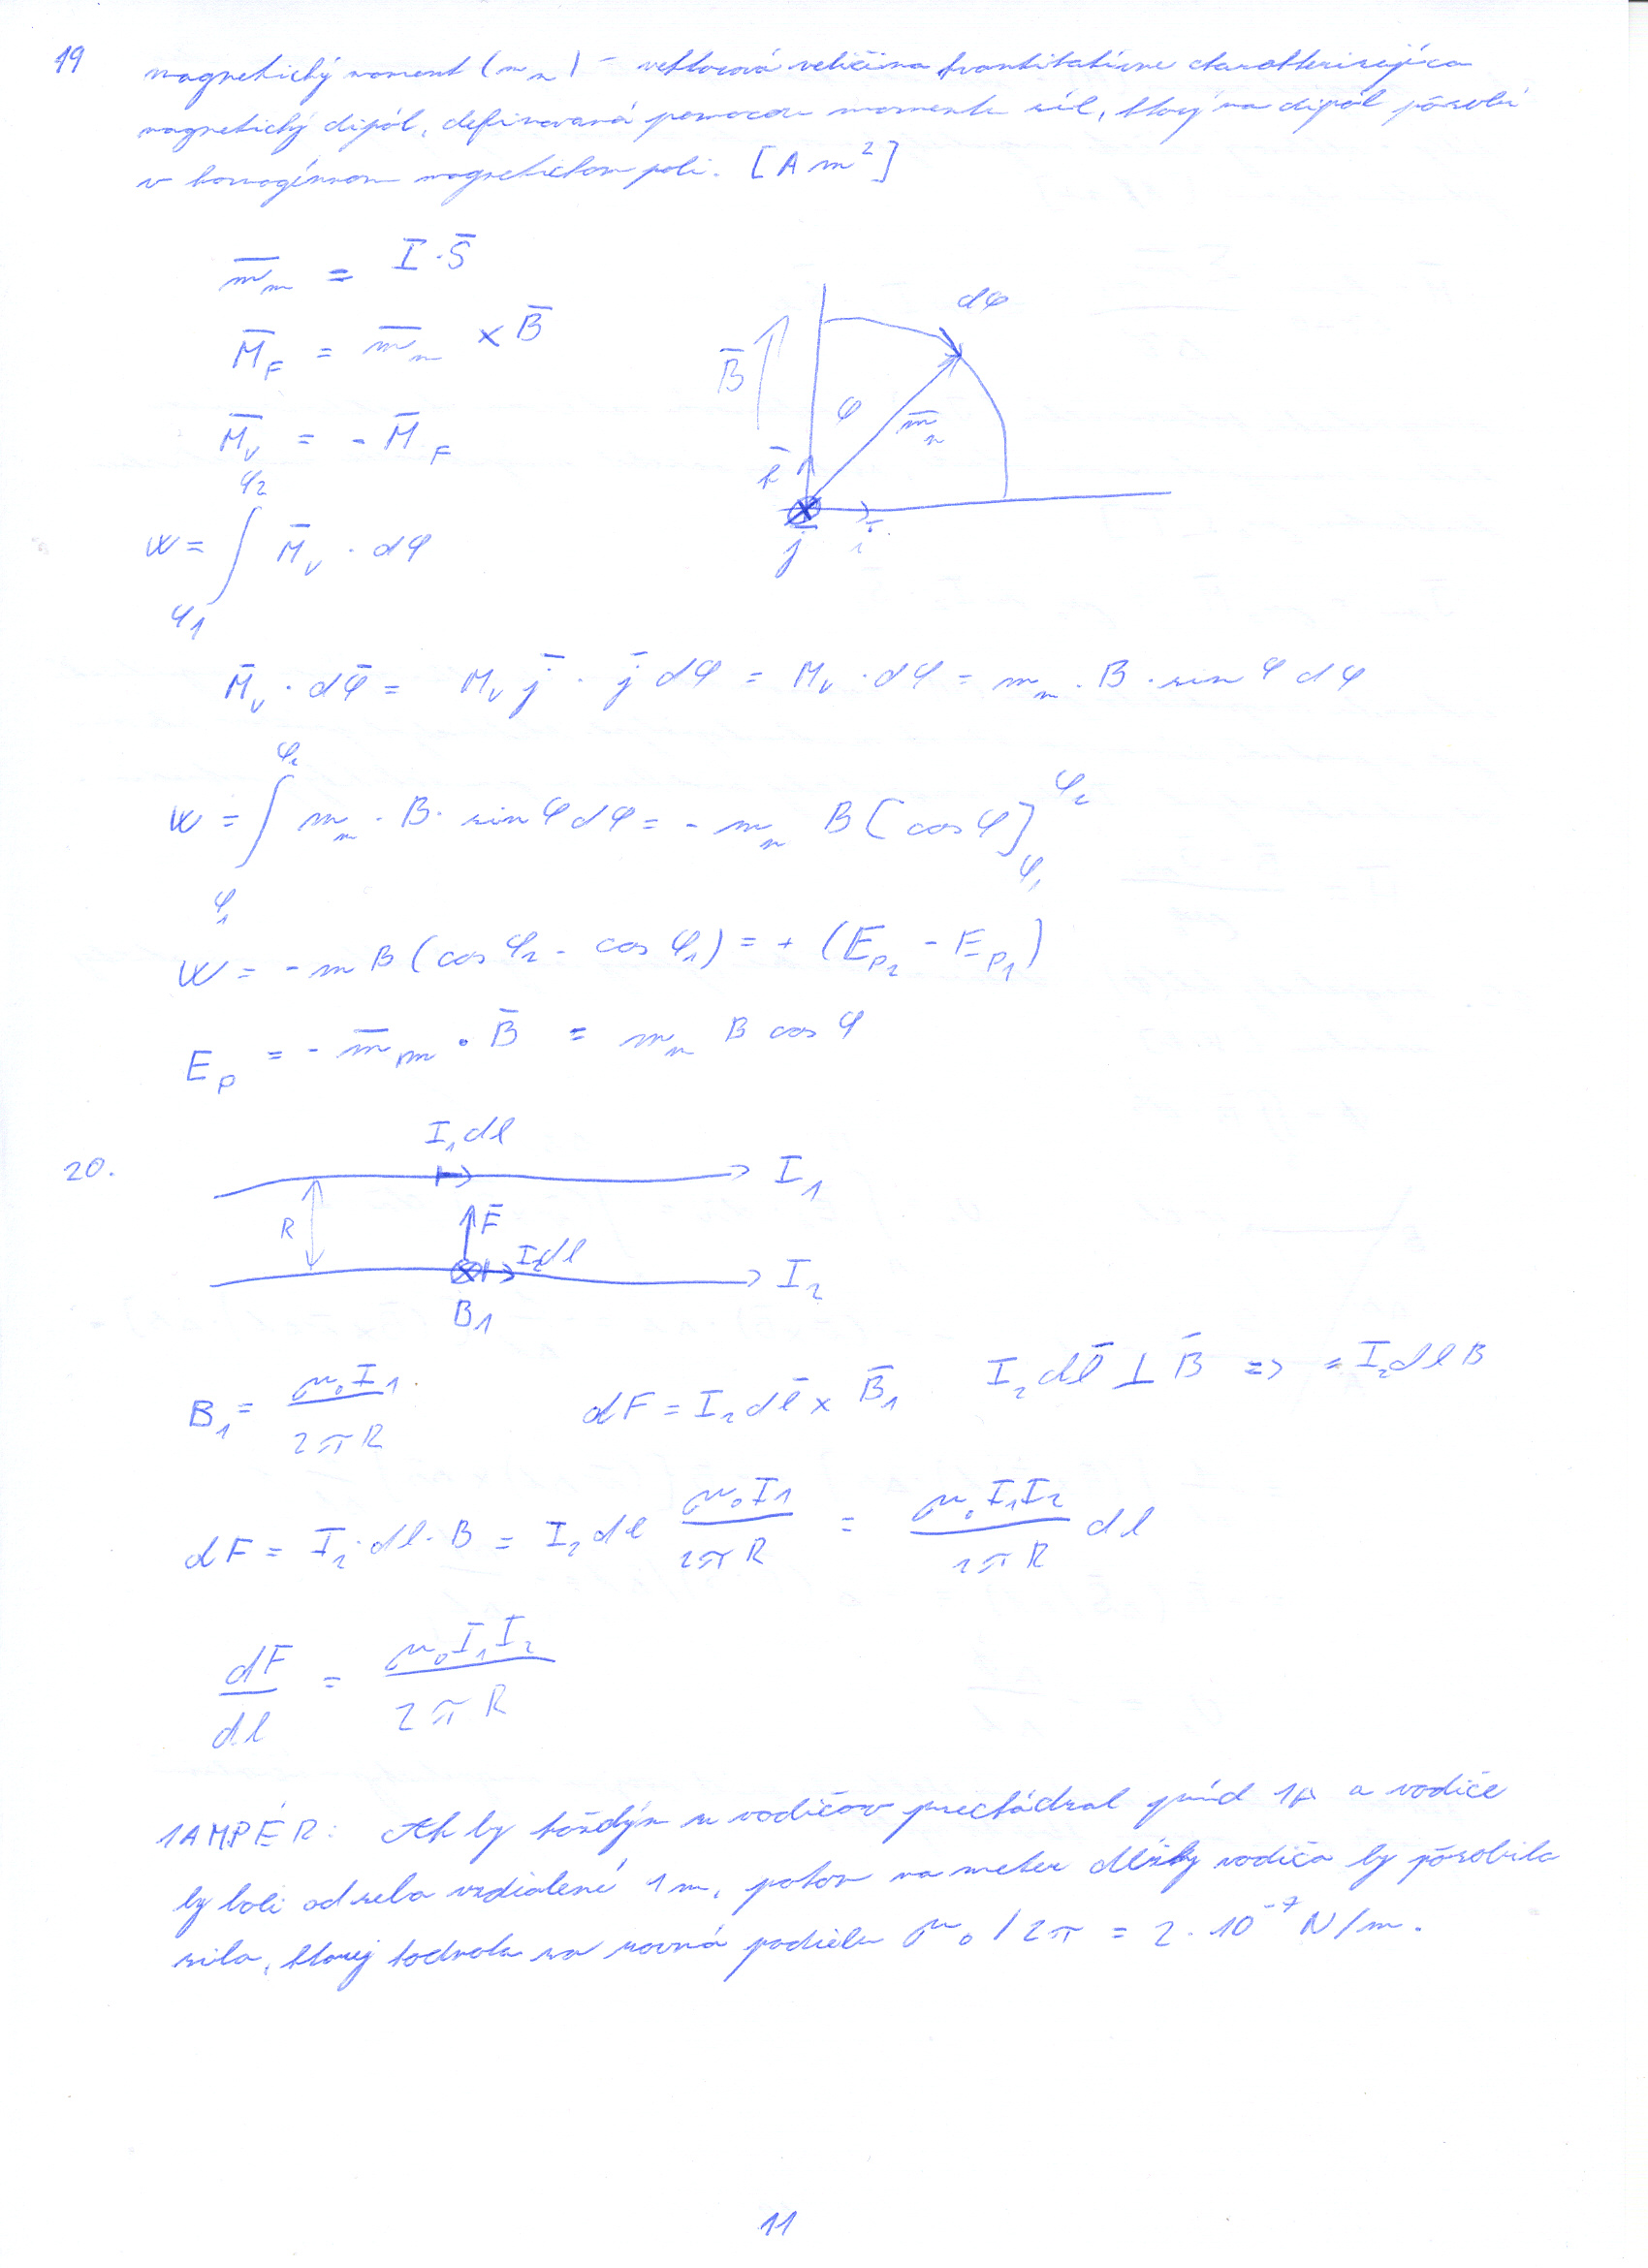 19 magnetický moment (m_m) – vektorová veličina kvantitatívne charakterizujúca
magnetický dipól, definovaná pomocou momentu síl, ktorý na dipól pôsobí
v homogénnom magnetickom poli. [A m²]
m̄_m = I · S̄
M̄_F = m̄_m × B̄
M̄_v = - M̄_F
W = ∫_{φ1}^{φ2} M̄_v · dφ
dφ
B̄
φ
m̄_m
k̄
j̄
ī
M̄_v · dφ̄ = M_v j̄ · j̄ dφ = M_v · dφ = m_m · B · sin φ dφ
W = ∫_{φ1}^{φ2} m_m · B · sin φ dφ = - m_m B [cos φ]_{φ1}^{φ2}
W = - m B (cos φ2 - cos φ1) = + (E_{p2} - E_{p1})
E_p = - m̄_m · B̄ = m_m B cos φ
20.
I_1 dl
I_1
R
F̄
I_2 dl
I_2
B_1
B_1 = μ_0 I_1 / 2πR   dF = I_2 dl̄ × B̄_1   I_2 dl̄ ⊥ B̄ => = I_2 dl B
dF = I_2 · dl · B = I_2 dl μ_0 I_1 / 2πR = μ_0 I_1 I_2 / 2πR dl
dF / dl = μ_0 I_1 I_2 / 2πR
1 AMPÉR: Ak by každým z vodičov prechádzal prúd 1A a vodiče
by boli od seba vzdialené 1 m, potom na meter dĺžky vodiča by pôsobila
sila, ktorej hodnota sa rovná podielu μ_0 / 2π = 2 · 10⁻⁷ N/m.
11